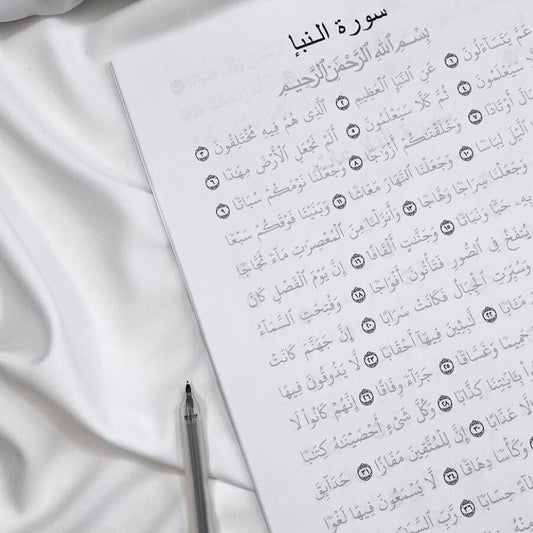 سورة النبإ
بِسْمِ ٱللَّهِ ٱلرَّحْمَٰنِ ٱلرَّحِيمِ
عَمَّ يَتَسَآءَلُونَ ١ عَنِ ٱلنَّبَإِ ٱلْعَظِيمِ ٢ ٱلَّذِى هُمْ فِيهِ مُخْتَلِفُونَ ٣
سَيَعْلَمُونَ ٤ ثُمَّ كَلَّا سَيَعْلَمُونَ ٥ أَلَمْ نَجْعَلِ ٱلْأَرْضَ مِهَٰدًا ٦
أَوْتَادًا ٧ وَخَلَقْنَٰكُمْ أَزْوَٰجًا ٨ وَجَعَلْنَا نَوْمَكُمْ سُبَاتًا ٩
ٱلَّيْلَ لِبَاسًا ١٠ وَجَعَلْنَا ٱلنَّهَارَ مَعَاشًا ١١ وَبَنَيْنَا فَوْقَكُمْ سَبْعًا
وَجَعَلْنَا سِرَاجًا وَهَّاجًا ١٣ وَأَنزَلْنَا مِنَ ٱلْمُعْصِرَٰتِ مَآءً ثَجَّاجًا
بِهِۦ حَبًّا وَنَبَاتًا ١٥ وَجَنَّٰتٍ أَلْفَافًا ١٦ إِنَّ يَوْمَ ٱلْفَصْلِ كَانَ
يُنفَخُ فِى ٱلصُّورِ فَتَأْتُونَ أَفْوَاجًا ١٨ وَفُتِحَتِ ٱلسَّمَآءُ
وَسُيِّرَتِ ٱلْجِبَالُ فَكَانَتْ سَرَابًا ٢٠ إِنَّ جَهَنَّمَ كَانَتْ
مَـَٔابًا ٢٢ لَّٰبِثِينَ فِيهَآ أَحْقَابًا ٢٣ لَّا يَذُوقُونَ فِيهَا
حَمِيمًا وَغَسَّاقًا ٢٥ جَزَآءً وِفَاقًا ٢٦ إِنَّهُمْ كَانُوا۟ لَا
بِـَٔايَٰتِنَا كِذَّابًا ٢٨ وَكُلَّ شَىْءٍ أَحْصَيْنَٰهُ كِتَٰبًا
عَذَابًا ٣٠ إِنَّ لِلْمُتَّقِينَ مَفَازًا ٣١ حَدَآئِقَ
وَكَأْسًا دِهَاقًا ٣٤ لَّا يَسْمَعُونَ فِيهَا لَغْوًا
حِسَابًا ٣٦ رَّبِّ
مِنْهُ